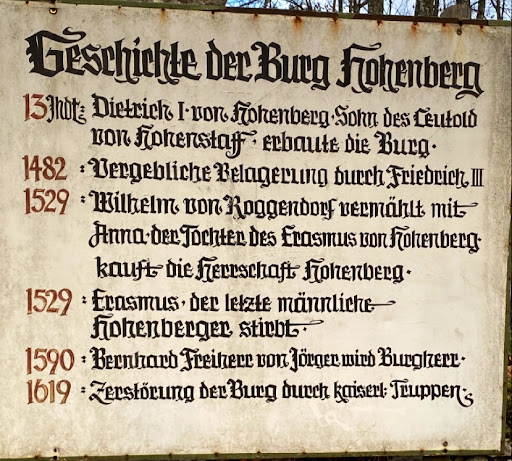 Geschichte der Burg Hohenberg
13 Jhdt: Dietrich I. von Hohenberg, Sohn des Leutold
von Hohenstaff, erbaute die Burg.
1482 : Vergebliche Belagerung durch Friedrich III
1529 : Wilhelm von Roggendorf vermählt mit
Anna, der Tochter des Erasmus von Hohenberg
kauft die Herrschaft Hohenberg.
1529 : Erasmus, der letzte männliche
Hohenberger stirbt.
1590 : Bernhard Freiherr von Jörger wird Burgherr.
1619 : Zerstörung der Burg durch kaiserl. Truppen.